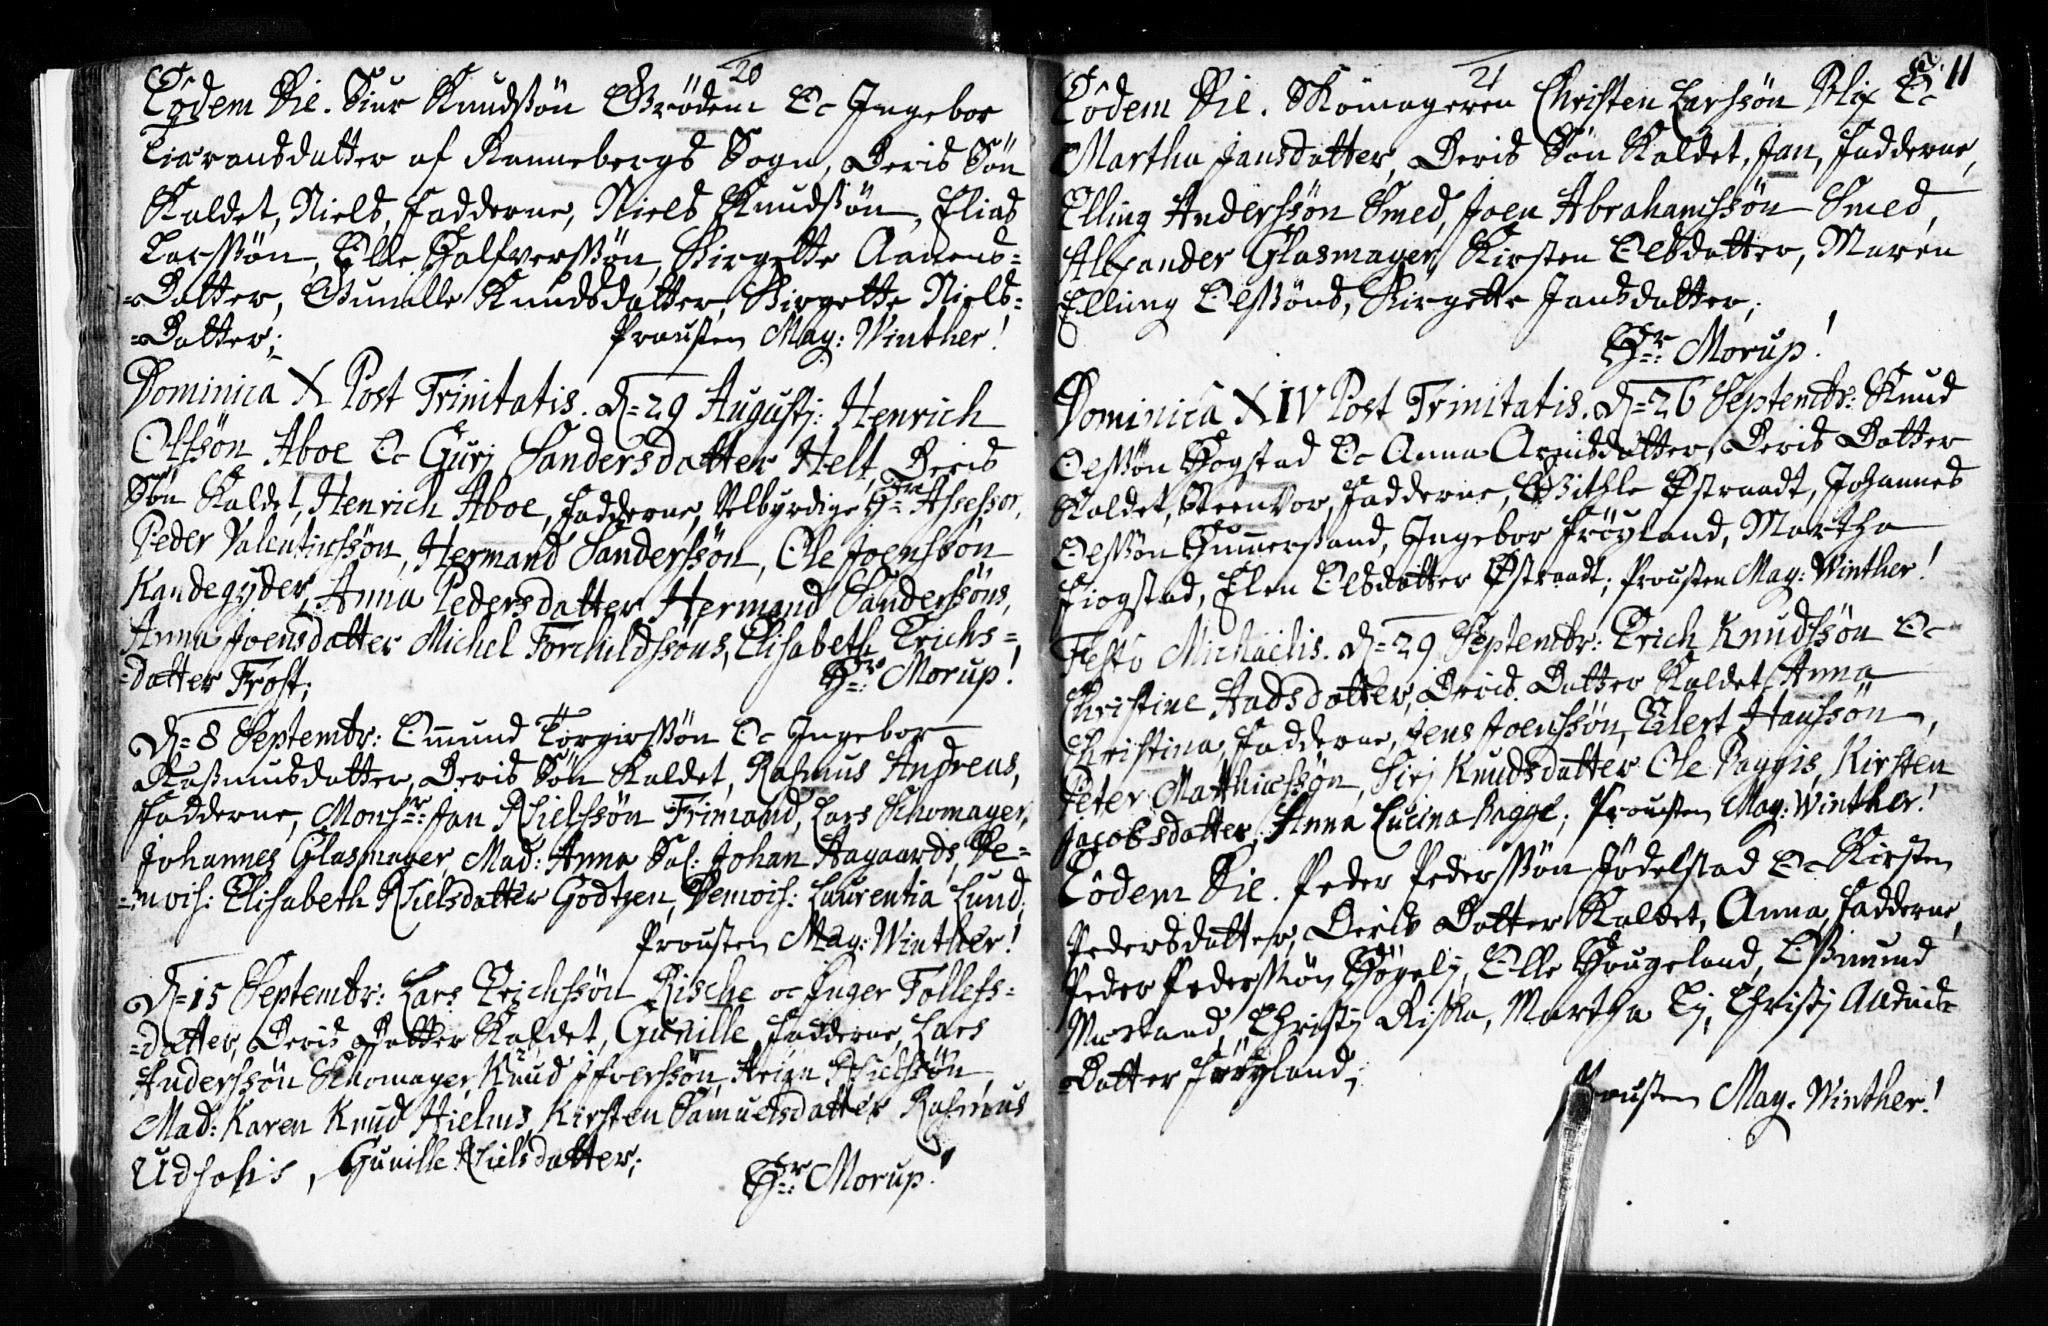 20
Eodem Die. Siur Knudssøn Grødem Oc Ingebor
Tiaransdatter af Rannebergs Sogn, Deris Søn
Kaldet, Niels, fadderne, Niels Knudssøn, Elias
Larssøn, Olle Halfverssøn, Birgette Aanens=
=Datter, Gunille Knudsdatter, Birgette Niels=
=Datter;
Prousten May: Winther!
Dominica X Post Trinitatis. D=29 Augustj: Henrich
Olssøn Aboe Oc Gurj Sandersdatter Helt, Deris
Søn Kaldet, Henrich Aboe, fadderne, Velbyrdige Hr: Assessor,
Peder Valentinssøn, Hermand Sanderssøn, Ole Joenssøn
Kandegyder, Anna Pedersdatter Hermand Sanderssøns,
Anna Joensdatter Michel Torchildssøns, Elisabeth Erichs=
=datter Frost;
Hr: Morup!
D=8 Septembr: Omund Torgirssøn Oc Ingebor
Rasmusdatter, Deris Søn Kaldet, Rasmus Andreas,
fadderne, Monsr: Jan Nielssøn Frimand, Lars Schomager,
Johannes Glasmager, Mad: Anna Sal: Johan Aagaards, De=
=mois: Elisabeth Nielsdatter Godtzen, Demois: Laurentia Lund;
Prousten May: Winther!
D=15 Septembr: Lars Erichssøn Rische oc Inger Tollefs=
=datter, Deris Datter Kaldet, Gunille, fadderne, Lars
Anderssøn Schomager, Knud Ifverssøn, Nielssøn,
Mad: Karen Knud Hielms, Kirsten Samuelsdatter Rasmus
Udsohis, Gunille Nielsdatter;
Hr: Morup!
21
11
Eodem Die. Skomageren Christen Larssøn Blix Oc
Martha Jansdatter, Deris Søn Kaldet, Jan, fadderne,
Elling Anderssøn Smed, Joen Abrahamssøn Smed,
Alexander Glasmager, Kirsten Olsdatter, Maren
Elling Olssøns, Birgette Jansdatter;
Hr: Morup!
Dominica XIV Post Trinitatis. D=26 Septembr: Knud
Olssøn Hogstad Oc Anna Arnisdatter, Deris Datter
Kaldet, Steenvor, fadderne, Githle Østraadt, Johannes
Olssøn Hummersand, Ingebor Frøyland, Martha
Fiogstad, Elen Olsdatter Østraadt; Prousten May: Winther!
Festo Michaelis. D=29 Septembr: Erich Knudssøn Oc
Christine Aadsdatter, Deris Datter Kaldet, Anna
Christina, fadderne, Jens Joenssøn, Eilert Hanssøn,
Peter Matthiessøn, Sirj Knudsdatter Ole Paggis, Kirsten
Jacobsdatter, Anna Lucina Bagge; Prousten May: Winther!
Eodem Die. Peder Pederssøn Jødelstad Oc Kirsten
Pedersdatter, Deris Datter Kaldet, Anna, fadderne,
Peder Pederssøn Høgelj, Olle Hougeland, Osmund
Morland, Christj Riska, Martha Lj, Christj
=Datter Frøyland;
Prousten May: Winther!